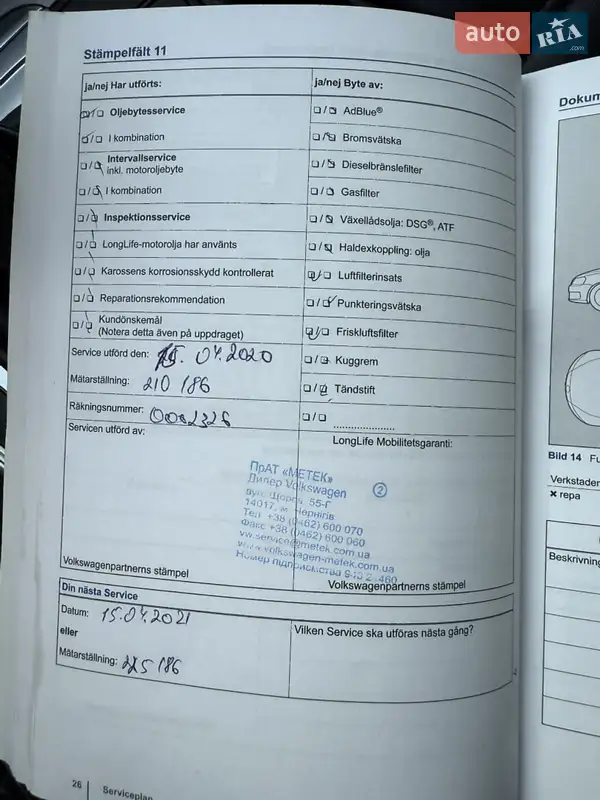 auto RIA .com
Stämpelfält 11
ja/nej Har utförts:
Oljebytesservice
I kombination
Intervallservice
inkl. motoroljebyte
I kombination
Inspektionsservice
LongLife-motorolja har använts
Karossens korrosionsskydd kontrollerat
Reparationsrekommendation
Kundönskemål
(Notera detta även på uppdraget)
Service utförd den: 15. 04.2020
Mätarställning: 210 186
Räkningsnummer: 0002326
Servicen utförd av:
Volkswagenpartnerns stämpel
ja/nej Byte av:
AdBlue®
Bromsvätska
Dieselbränslefilter
Gasfilter
Växellådsolja: DSG®, ATF
Haldexkoppling: olja
Luftfilterinsats
Punkteringsvätska
Friskluftsfilter
Kuggrem
Tändstift
LongLife Mobilitetsgaranti:
ПрАТ «МЕТЕК»
Дилер Volkswagen
2
вул. Щорса, 55-Г
14017, м. Чернігів
Тел. +38 (0462) 600 070
Факс +38 (0462) 600 060
vw.service@metek.com.ua
www.volkswagen-metek.com.ua
Номер підприємства
Volkswagenpartnerns stämpel
Din nästa Service
Datum: 15.04.2021
eller
Mätarställning: 225 186
Vilken Service ska utföras nästa gång?
26
Serviceplan
Dokum
Bild 14 Fu
Verkstaden
× repa
Beskrivning